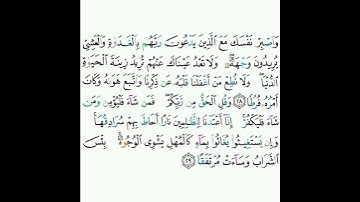 وَاصْبِرْ نَفْسَكَ مَعَ الَّذِينَ يَدْعُونَ رَبَّهُم بِالْغَدَاةِ وَالْعَشِيِّ
يُرِيدُونَ وَجْهَهُ ۖ وَلَا تَعْدُ عَيْنَاكَ عَنْهُمْ تُرِيدُ زِينَةَ الْحَيَوٰةِ
الدُّنْيَا ۖ وَلَا تُطِعْ مَنْ أَغْفَلْنَا قَلْبَهُ عَن ذِكْرِنَا وَاتَّبَعَ هَوَىٰهُ وَكَانَ
أَمْرُهُ فُرُطًا ٢٨ وَقُلِ الْحَقُّ مِن رَّبِّكُمْ ۖ فَمَن شَاءَ فَلْيُؤْمِن وَمَن
شَاءَ فَلْيَكْفُرْ ۚ إِنَّا أَعْتَدْنَا لِلظَّالِمِينَ نَارًا أَحَاطَ بِهِمْ سُرَادِقُهَا ۚ
وَإِن يَسْتَغِيثُوا يُغَاثُوا بِمَاءٍ كَالْمُهْلِ يَشْوِي الْوُجُوهَ ۚ بِئْسَ
الشَّرَابُ وَسَاءَتْ مُرْتَفَقًا ٢٩